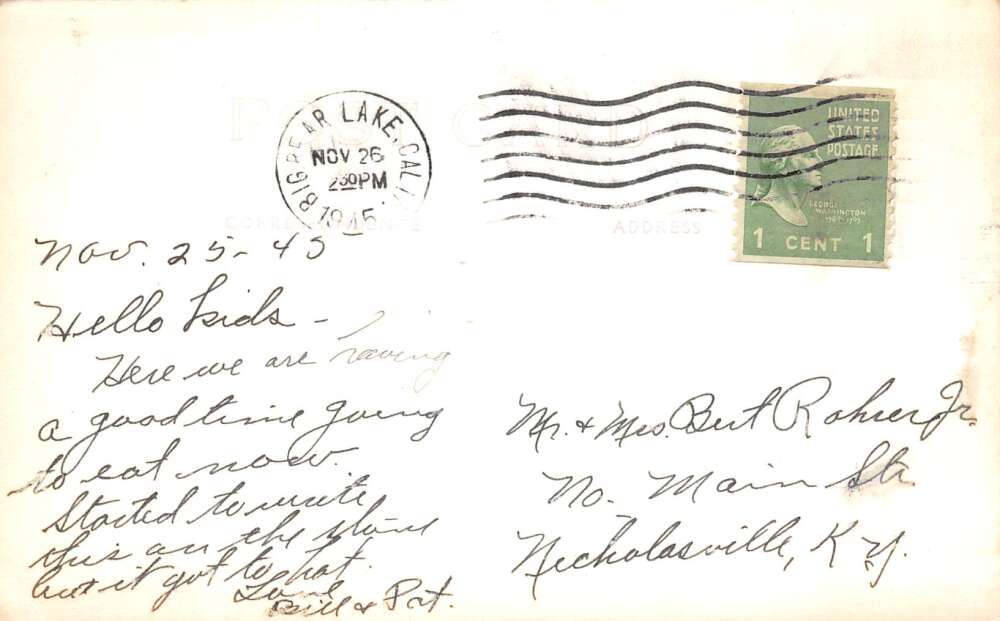 POST CARD
BIG BEAR LAKE, CALIF.
NOV 26
2 30 PM
1945
UNITED
STATES
POSTAGE
GEORGE
WASHINGTON
1789-1797
1 CENT 1
CORRESPONDENCE
ADDRESS
Nov. 25-45
Hello kids -
Here we are having
a good time going
to eat now.
Started to write
this on the stove
but it got to hot.
Love
Bill & Pat.
Mr. & Mrs. Bert Rohrer Jr.
No. Main Str.
Nicholasville, Ky.